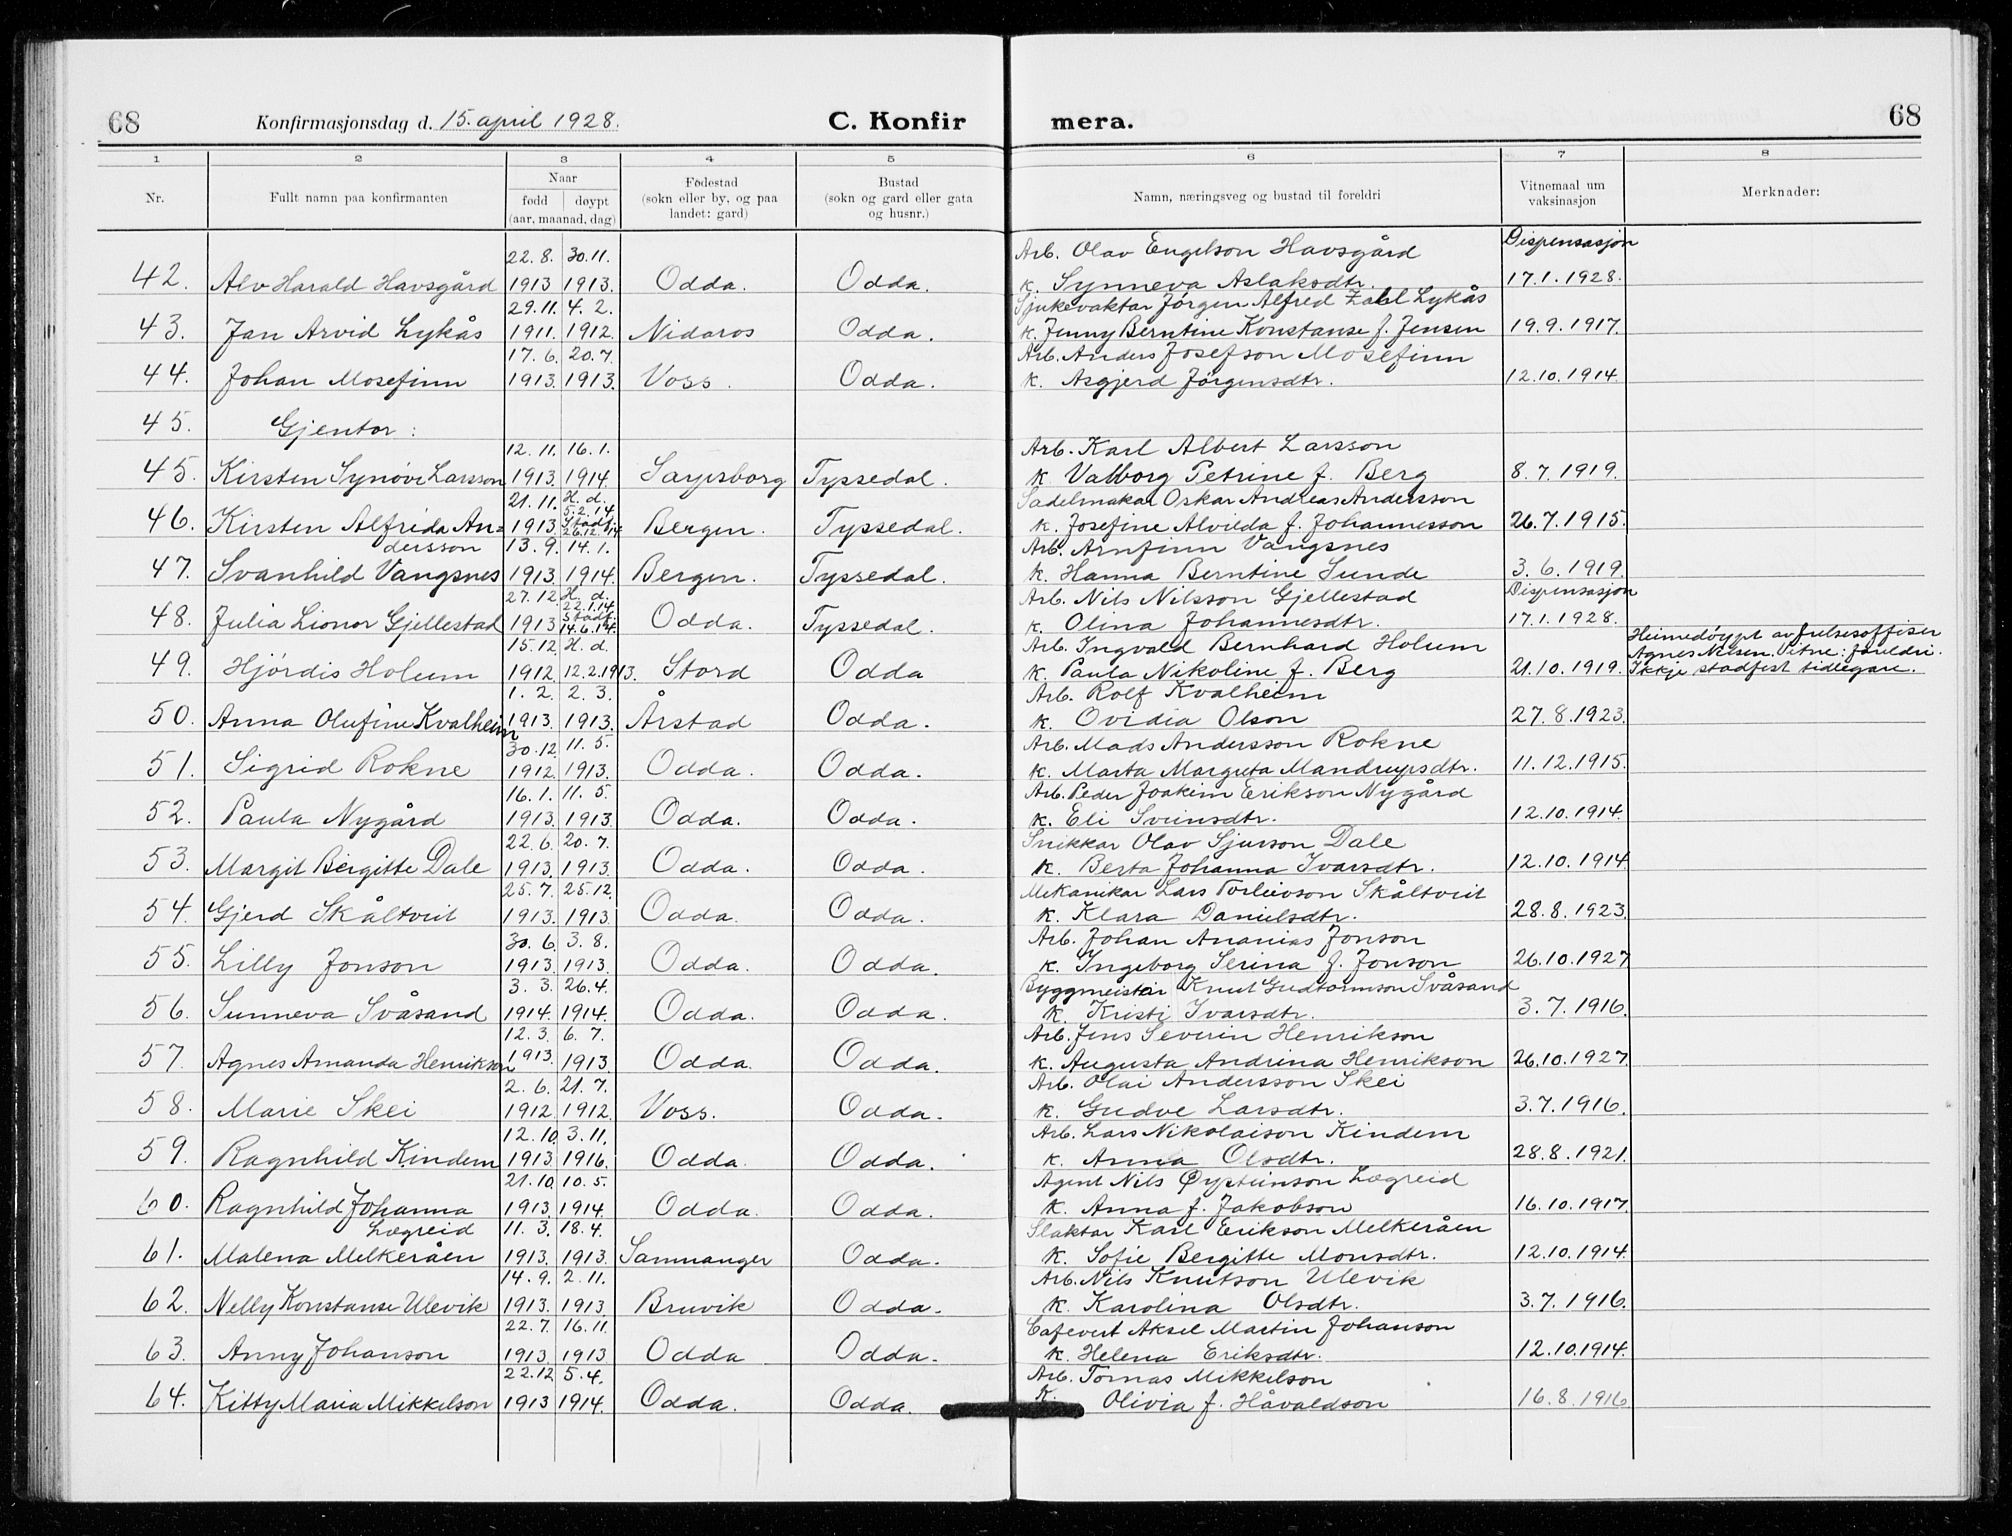 68
Konfirmasjonsdag d. 15. april 1928.
C. Konfirmera.
68
1 2 3 4 5 6 7 8
Nr.
Fullt namn paa konfirmanten
Naar
fødd døypt
(aar, maanad, dag)
Fødestad
(sokn eller by, og paa
landet: gard)
Bustad
(sokn og gard eller gata
og husnr.)
Namn, næringsveg og bustad til foreldri
Vitnemaal um
vaksinasjon
Merknader:
22.8. 30.11. Arb. Olav Engelson Havsgård Dispensasjon
42. Alv Harald Havsgård 1913 1913. Odda. Odda. k. Synneva Aslaksdtr. 17.1.1928.
29.11. 4.2. Sjukevaktar Jørgen Alfred Zahl Lykås
43. Jan Arvid Lykås 1911. 1912. Nidaros Odda. k. Jenny Berntine Konstanse f. Jensen 19.9.1917.
17.6. 20.7. Arb. Anders Josefson Mosefinn
44. Johan Mosefinn 1913. 1913. Voss. Odda. k. Asgjerd Jørgensdtr. 12.10.1914.
45. Gjentor:
12.11. 16.1. Arb. Karl Albert Larsson
45. Kirsten Synøve Larsson 1913. 1914. Sarpsborg Tyssedal. k Valborg Petrine f. Berg 8.7.1919.
21.11. H. d. 5.2.14 Sadelmakar Oskar Andreas Andersson
46. Kirsten Alfrida An= 1913. Stadf. 26.12.14 Bergen. Tyssedal. k. Josefine Alvilda f. Johannesson 26.7.1915.
dersson 13.9. 14.1. Arb. Arnfinn Vangsnes
47. Svanhild Vangsnes 1913. 1914. Bergen. Tyssedal. k. Hanna Berntine Sunde 3.6.1919.
27.12 H. d. 22.1.14 Arb. Nils Nilsson Gjellestad Dispensasjon
48. Julia Lionor Gjellestad 1913 Stadf. 14.6.14. Odda. Tyssedal. k. Olina Johannesdtr. 17.1.1928.
15.12. H. d. Arb. Ingvald Bernhard Holum Heimedøypt av frelsesoffiser
Agnes Nilsen. Vitne: foreldri.
49. Hjørdis Holum 1912. 12.2.1913. Stord Odda k. Paula Nikoline f. Berg 21.10.1919. Ikkje stadfest tidlegare.
1.2. 2.3. Arb. Rolf Kvalheim
50. Anna Olufine Kvalheim 1913. 1913. Årstad Odda. k. Ovidia Olson 27.8.1923.
30.12. 11.5. Arb. Mads Andersson Rokne
51. Sigrid Rokne 1912. 1913. Odda. Odda. k. Marta Margreta Mandrupsdtr. 11.12.1915.
16.1. 11.5. Arb. Peder Joakim Erikson Nygård
52. Paula Nygård 1913. 1913. Odda. Odda. k. Eli Sveinsdtr. 12.10.1914.
22.6. 20.7. Snikkar Olav Sjurson Dale
53. Margit Bergitte Dale 1913. 1913. Odda. Odda. k. Berta Johanna Ivarsdtr. 12.10.1914
25.7. 25.12. Mekanikar Lars Torleivson Skåltveit
54. Gjerd Skåltveit 1913. 1913. Odda. Odda. k. Klara Danielsdtr. 28.8.1923.
30.6. 3.8. Arb. Johan Ananias Jonson
55. Lilly Jonson 1913. 1913. Odda. Odda. k. Ingeborg Serina f. Jonson 26.10.1927
3.3. 26.4. Byggmeister Knut Gudtormson Svåsand
56. Sunneva Svåsand 1914. 1914. Odda. Odda. k. Kristi Ivarsdtr. 3.7.1916.
12.3. 6.7. Arb. Jens Severin Henrikson
57. Agnes Amanda Henrikson 1913. 1913. Odda. Odda. k. Augusta Andrina Henrikson 26.10.1927.
2.6. 21.7. Arb. Olai Andersson Skei
58. Marie Skei 1912. 1912. Voss. Odda. k. Gudve Larsdtr. 3.7.1916.
12.10. 3.11. Arb. Lars Nikolaison Kindem
59. Ragnhild Kindem 1913 1916. Odda. Odda. k. Anna Olsdtr. 28.8.1921.
21.10. 10.5. Agent Nils Øysteinson Lægreid
60. Ragnhild Johanna 1913. 1914. Odda. Odda. k. Anna f. Jakobson 16.10.1917.
Lægreid 11.3. 18.4. Slaktar Karl Erikson Melkeråen
61. Malena Melkeråen 1913. 1913. Samnanger Odda. k. Sofie Bergitte Monsdtr. 12.10.1914.
14.9. 2.11. Arb. Nils Knutson Ulevik
62. Nelly Konstanse Ulevik 1913. 1913. Bruvik Odda. k. Karolina Olsdtr. 3.7.1916.
22.7. 16.11. Cafevert Aksel Martin Johanson
63. Anny Johanson 1913. 1913 Odda Odda. k. Helena Eriksdtr. 12.10.1914.
22.12 5.4. Arb. Tomas Mikkelson
64. Kitty Maria Mikkelson 1913 1914. Odda. Odda. k. Olivia f. Håvaldson 16.8.1916